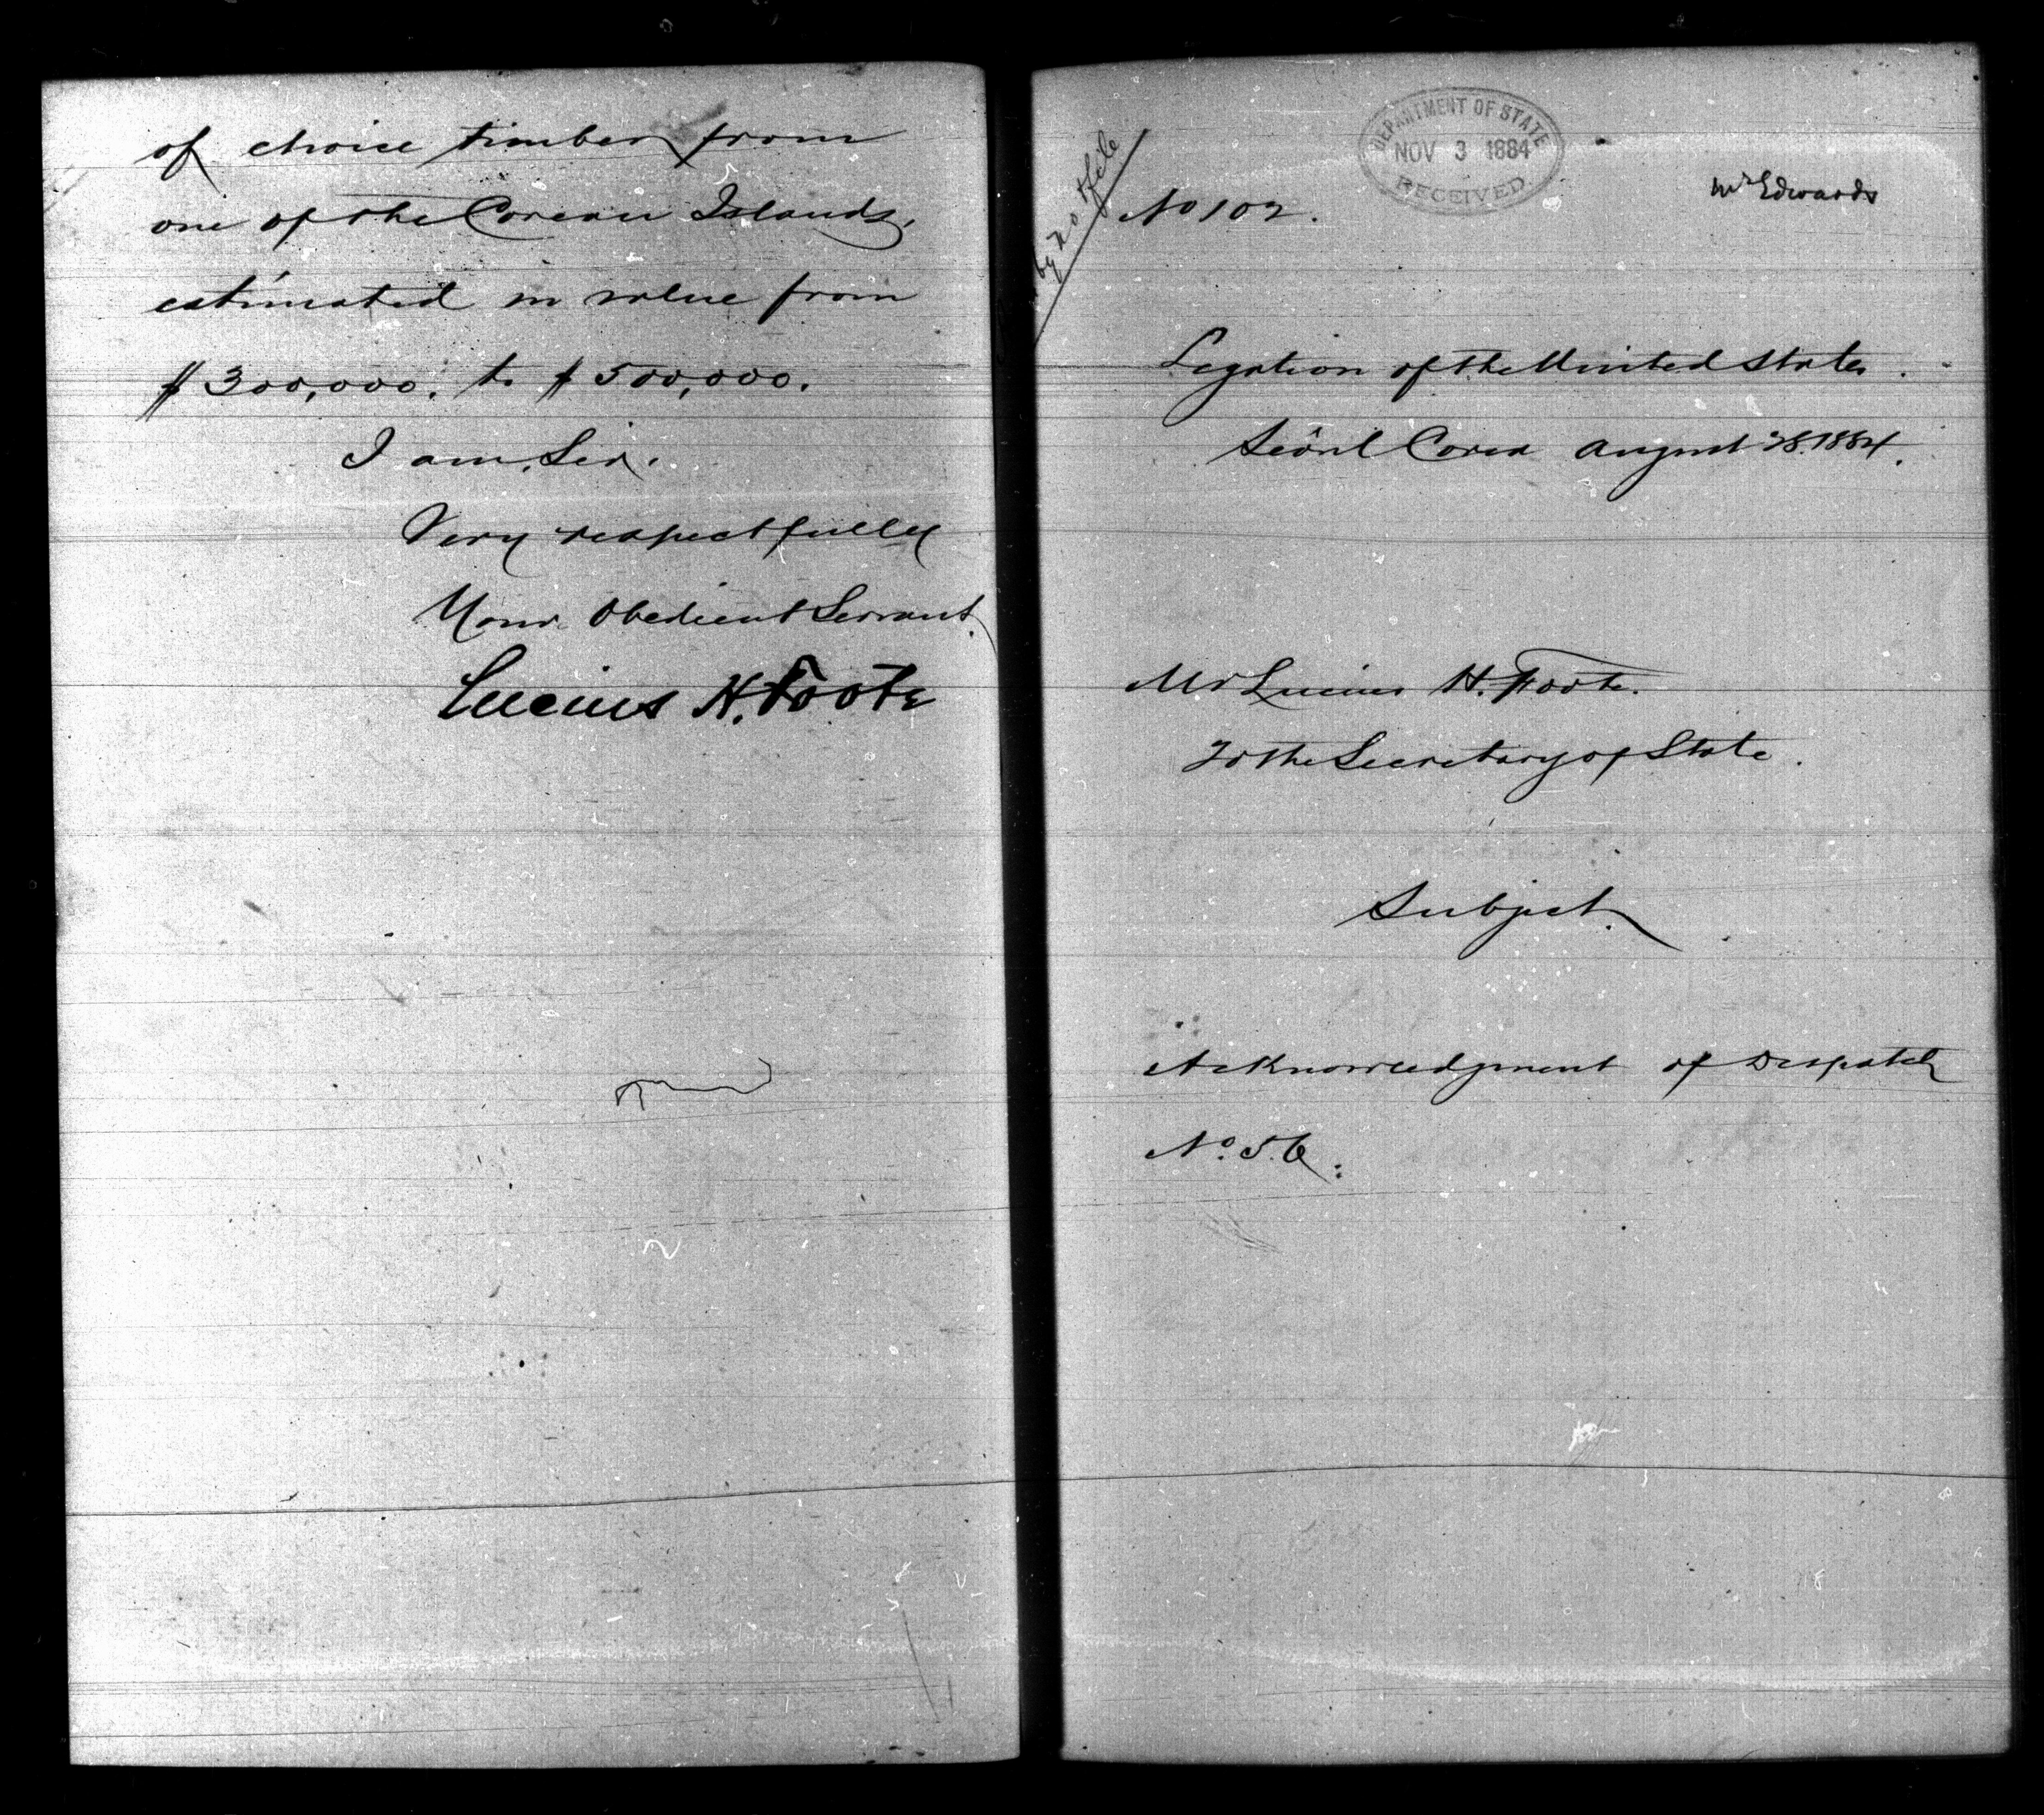 of choice timber from
one of the Corean Islands,
estimated in value from
$300,000. to $500,000.
I am, Sir.
Very respectfully
Your Obedient Servant.
Lucius H. Foote
DEPARTMENT OF STATE
NOV 3 1884
RECEIVED.
Mr Edwards
No 102.
Legation of the United States.
Seoul Corea August 28. 1884.
Mr Lucius H. Foote.
To the Secretary of State.
Subject.
Acknowledgment of Despatch
No. 56.